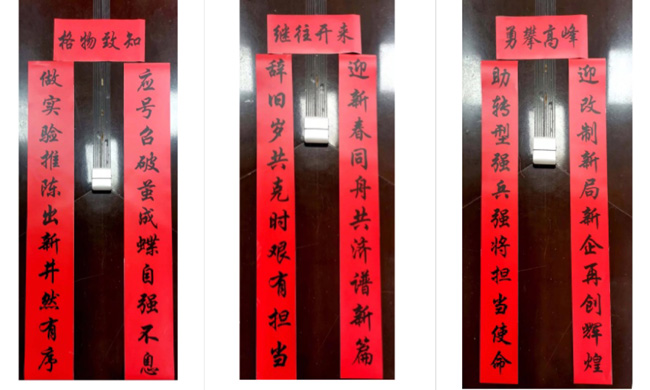 格物致知
应号召破茧成蝶自强不息
做实验推陈出新井然有序
继往开来
迎新春同舟共济谱新篇
辞旧岁共克时艰有担当
勇攀高峰
迎改制新局新企再创辉煌
助转型强兵强将担当使命